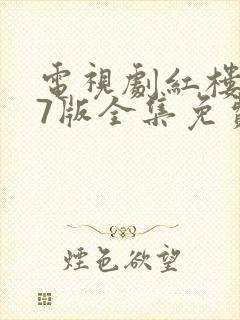 電視劇紅樓
7版全集免
煙色欲望